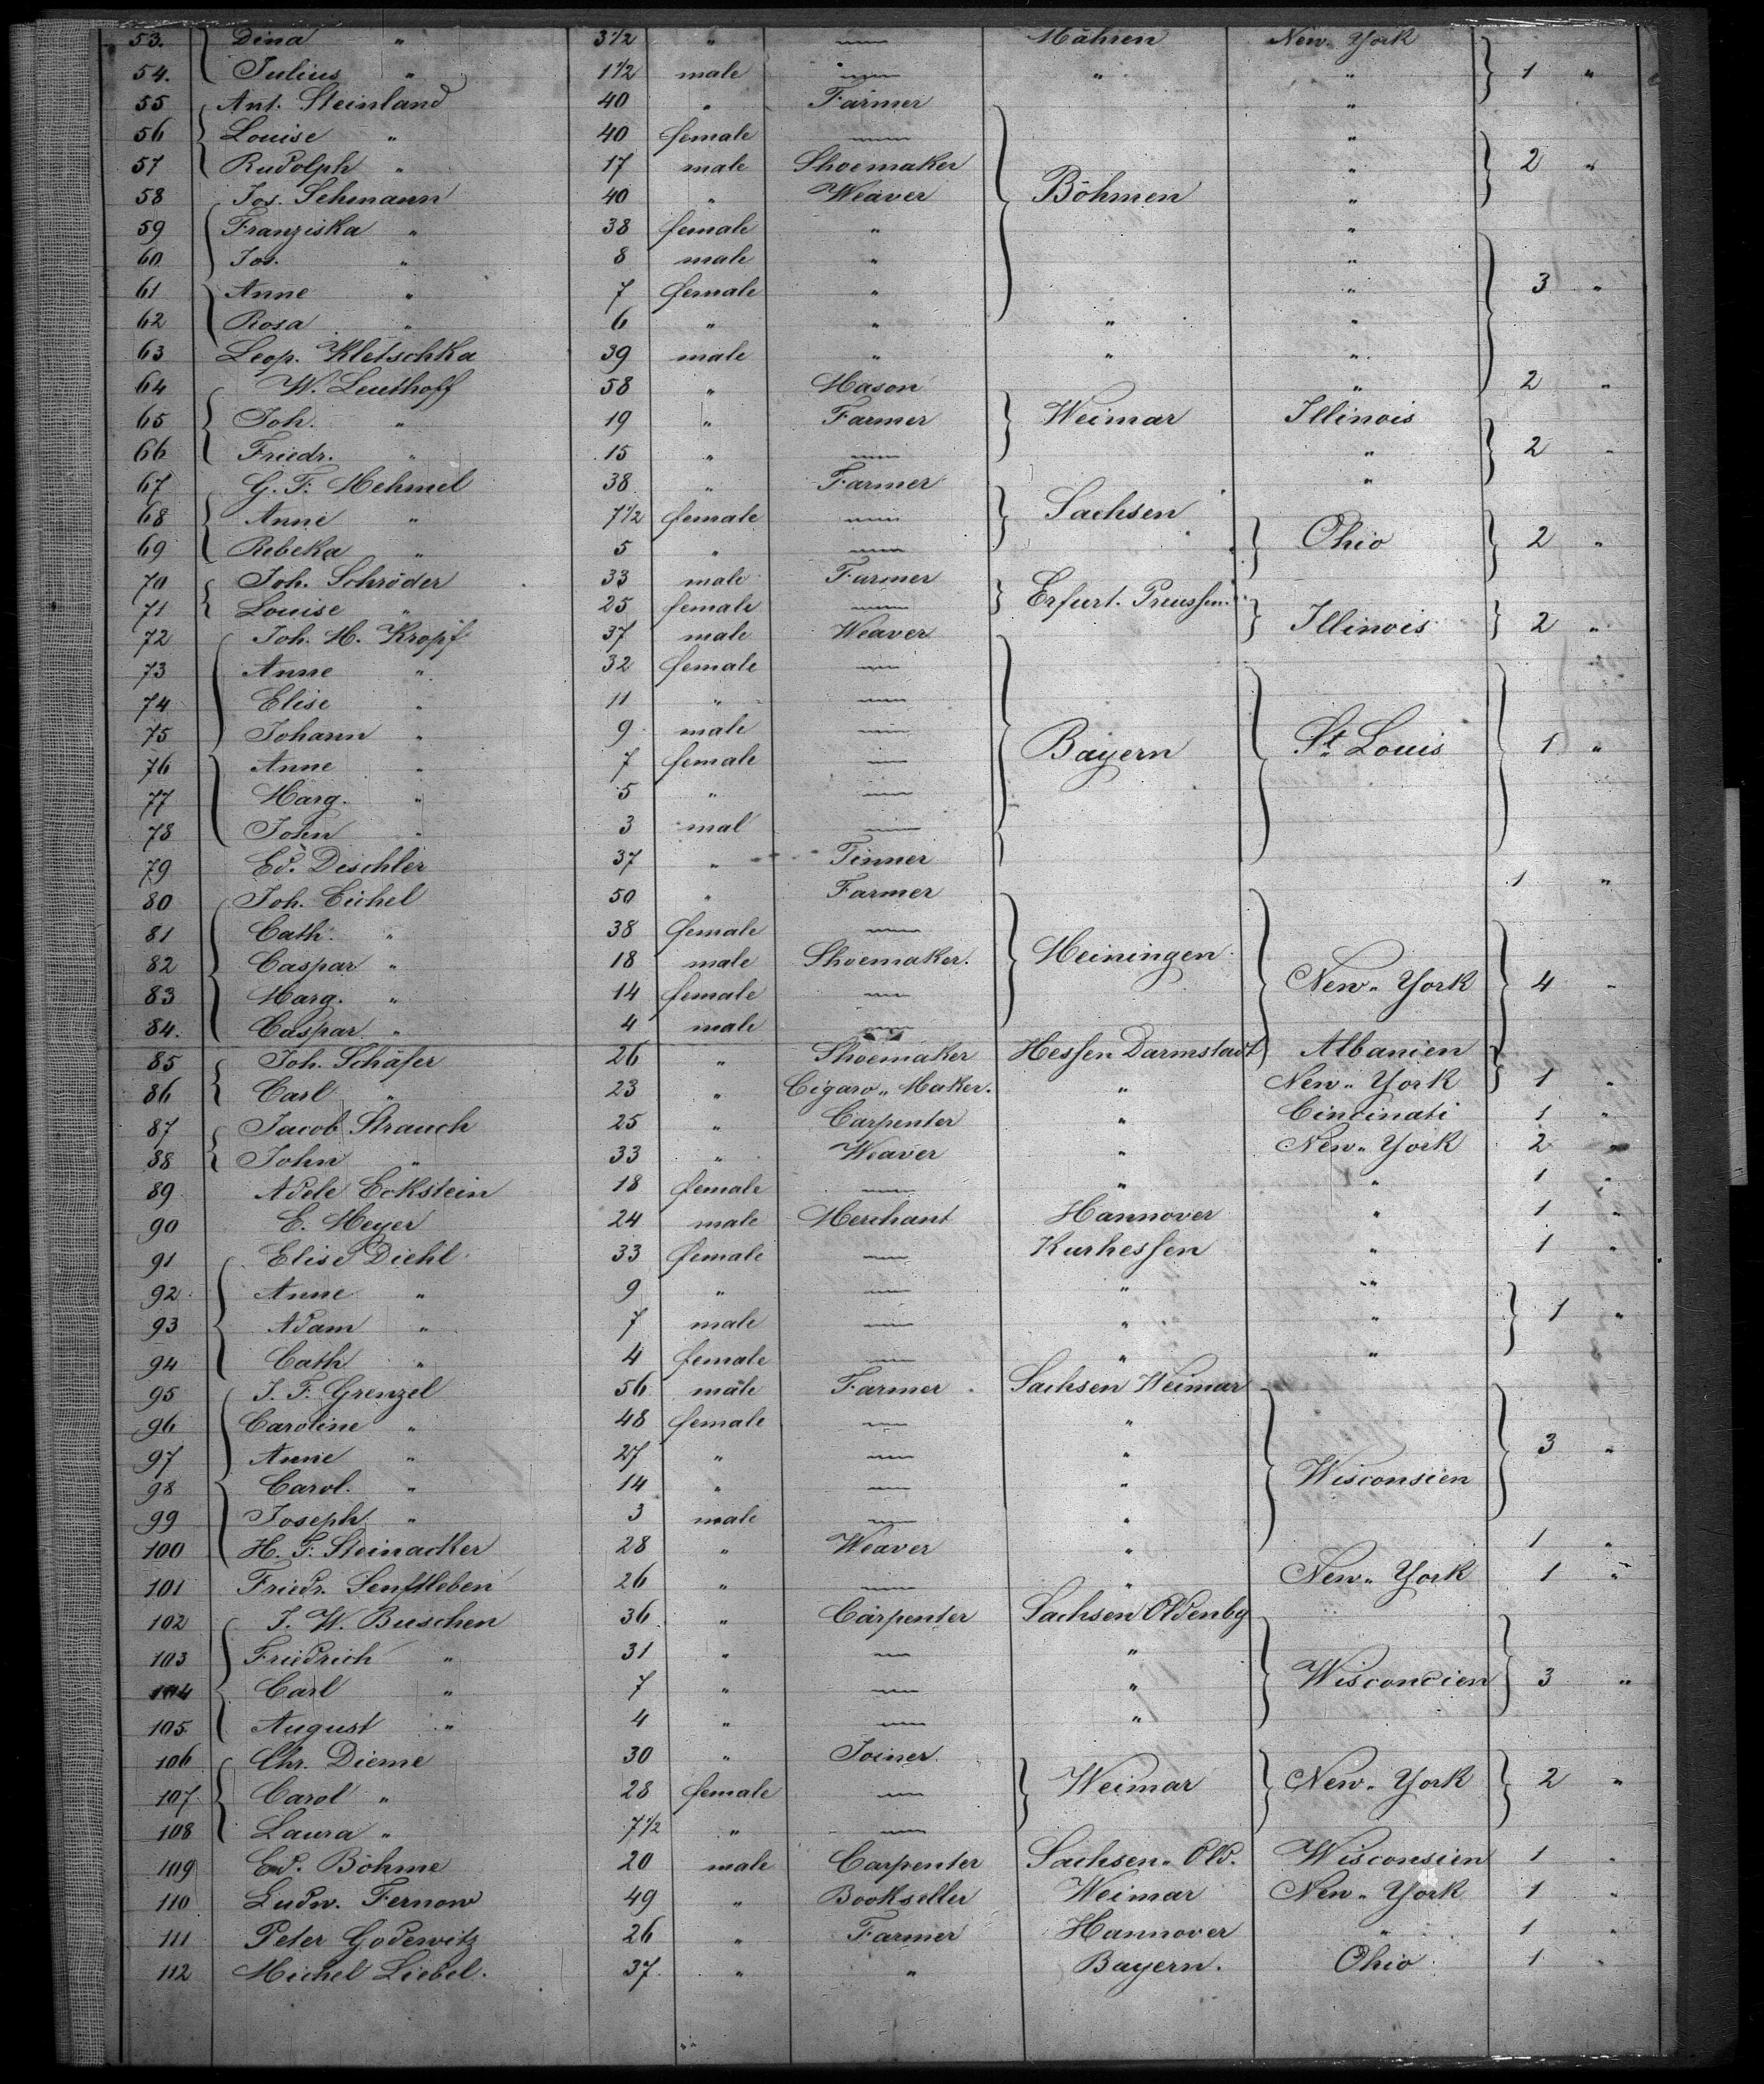 53. Dina " 3 1/2 " — Mähren New York
54. Julius " 1 1/2 male — " " 1 "
55 Ant. Steinland 40 " Farmer "
56 Louise " 40 female — "
57 Rudolph " 17 male Shoemaker " 2 "
58 Jos. Sehmann 40 " Weaver Böhmen "
59 Franziska " 38 female " "
60 Jos. " 8 male " "
61 Anne " 7 female " " 3 "
62 Rosa " 6 " " " "
63 Leop. Kletschka 39 male " " "
64 W. Leuthoff 58 " Mason " 2 "
65 Joh. " 19 " Farmer Weimar Illinois
66 Friedr. " 15 " — " 2 "
67 G. F. Mehmel 38 " Farmer "
68 Anne " 7 1/2 female — Sachsen
69 Rebeka " 5 " — Ohio 2 "
70 Joh. Schröder 33 male Farmer
71 Louise " 25 female — Erfurt. Preussen.
72 Joh. M. Kropf 37 male Weaver Illinois 2 "
73 Anne " 32 female —
74 Elise " 11 " —
75 Johann " 9 male — St Louis 1 "
76 Anne " 7 female — Bayern
77 Marg. " 5 " —
78 John " 3 mal —
79 Ed. Deschler 37 " Tinner
80 Joh. Eichel 50 " Farmer 1 "
81 Cath. " 38 female —
82 Caspar " 18 male Shoemaker. Meiningen
83 Marg. " 14 female — New York 4 "
84. Caspar " 4 male —
85 Joh. Schäfer 26 " Shoemaker Hessen Darmstadt Albanien
86 Carl " 23 " Cigaro Maker. " New York 1 "
87 Jacob Strauch 25 " Carpenter " Cincinati 1 "
88 John " 33 " Weaver " New York 2 "
89 Adele Eckstein 18 female — " " 1 "
90 E. Meyer 24 male Merchant Hannover " 1 "
91 Elise Diehl 33 female — Kurhessen " 1 "
92 Anne " 9 " — " "
93 Adam " 7 male — " " 1 "
94 Cath " 4 female — " "
95 J. F. Grenzel 56 male Farmer Sachsen Weimar
96 Caroline " 48 female — "
97 Anne " 27 " — " 3 "
98 Carol. " 14 " — " Wisconsien
99 Joseph " 3 male — "
100 H. F. Steinacker 28 " Weaver " 1 "
101 Friedr. Senftleben 26 " — " New York 1 "
102 J. W. Buschen 36 " Carpenter Sachsen Oldenbg
103 Friedrich " 31 " — "
104 Carl " 7 " — " Wisconcien 3 "
105. August " 4 " — "
106 Chr. Dieme 30 " Joiner.
107 Carol " 28 female — Weimar New York 2 "
108 Laura " 7 1/2 " —
109 Ed. Böhme 20 male Carpenter Sachsen Old. Wisconsien 1 "
110 Ludw. Fernow 49 " Bookseller Weimar New York 1 "
111 Peter Godewitz 26 " Farmer Hannover " 1 "
112 Michel Liebel. 37. " " Bayern. Ohio 1 "